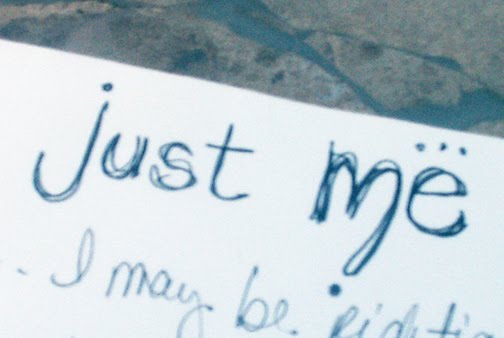 just më
I may be